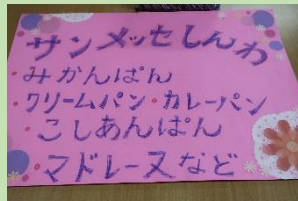 サンメッセしんわ
・みかんぱん
・クリームパン・カレーパン
・こしあんぱん
・マドレーヌなど